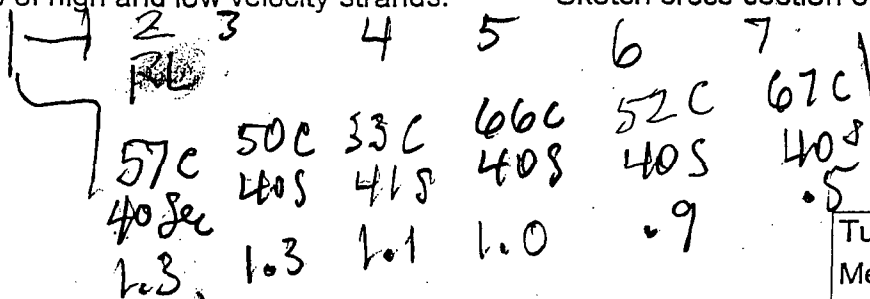 of high and low velocity strands. Sketch cross-section
1 2 3 4 5 6 7
57C 50C 33C 66C 52C 67C
40 Sec 40S 41S 40S 40S 40S
1.3 1.3 1.1 1.0 .9 .5
Tu
Me